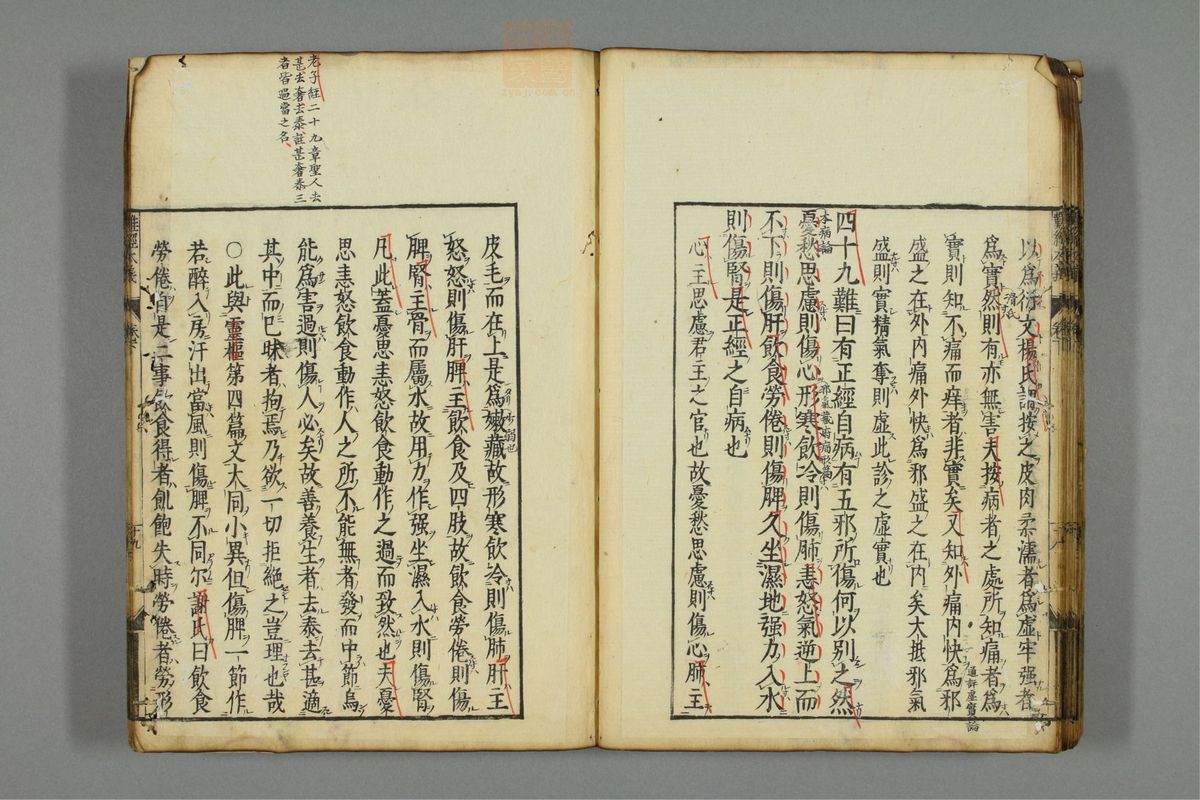 以爲衍文楊氏謂按之皮肉柔濡者爲虛牢强者
爲實然則有亦無害夫按病者之處所知痛者爲
滑氏
實則知不痛而痒者非實矣又知外痛内快爲邪
盛之在外内痛外快爲邪盛之在内矣大抵邪氣
盛則實精氣奪則虛此診之虛實也
四十九難曰有正經自病有五邪所傷何以別之然
憂愁思慮則傷心形寒飲冷則傷肺恚怒氣逆上而
不下則傷肝飲食勞倦則傷脾久坐濕地强力入水
則傷腎是正經之自病也
心主思慮君主之官也故憂愁思慮則傷心肺主
老子經二十九章聖人去
甚去奢去泰註甚奢泰三
者皆過當之名
皮毛而在上是爲嫩藏故形寒飲冷則傷肺肝主
怒怒則傷肝脾主飲食及四肢故飲食勞倦則傷
脾腎主骨而屬水故用力作强坐濕入水則傷腎
凡此蓋憂思恚怒飲食動作之過而致然也夫憂
思恚怒飲食動作人之所不能無者發而中節烏
能爲害過則傷人必矣故善養生者去泰去甚適
其中而已昧者拘焉乃欲一切拒絶之豈理也哉
○此與靈樞第四篇文大同小異但傷脾一節作
若醉入房汗出當風則傷脾不同尔謝氏曰飲食
勞倦自是二事飲食得者飢飽失時勞倦者勞形